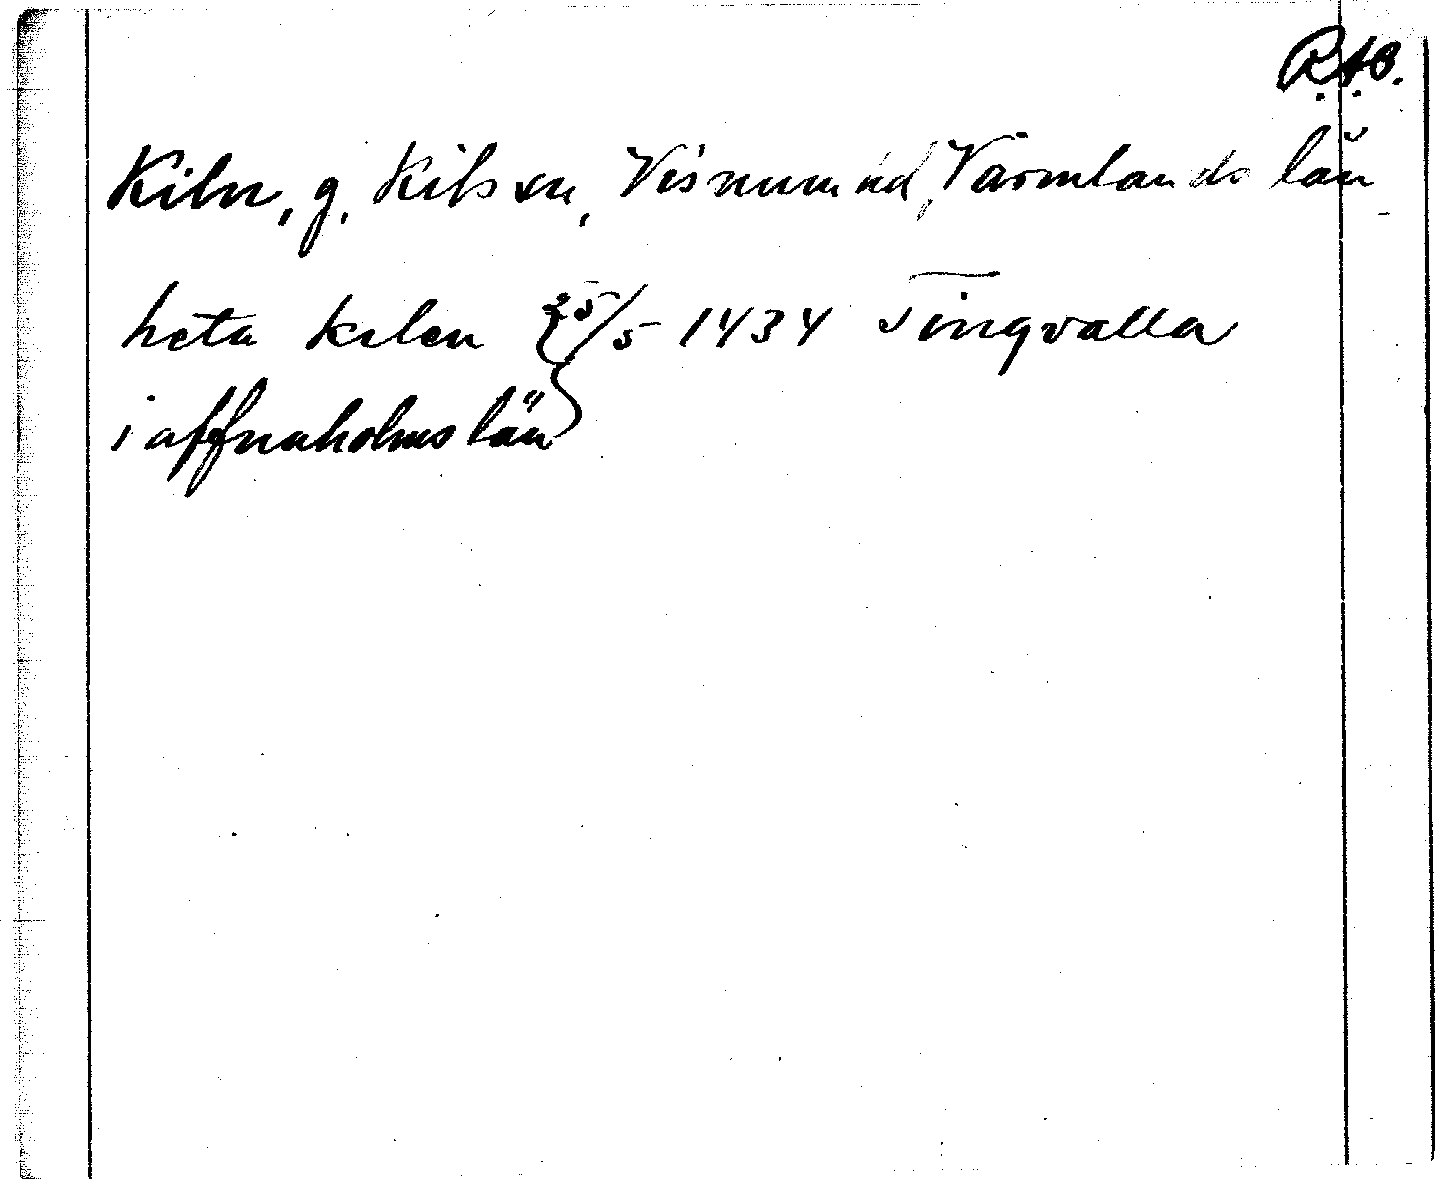 R.A.O.
Kiln, g. Kils sn, Visnum hd, Värmlands län
heta kilen 25/5 1434 Tingvalla
i affnaholms län